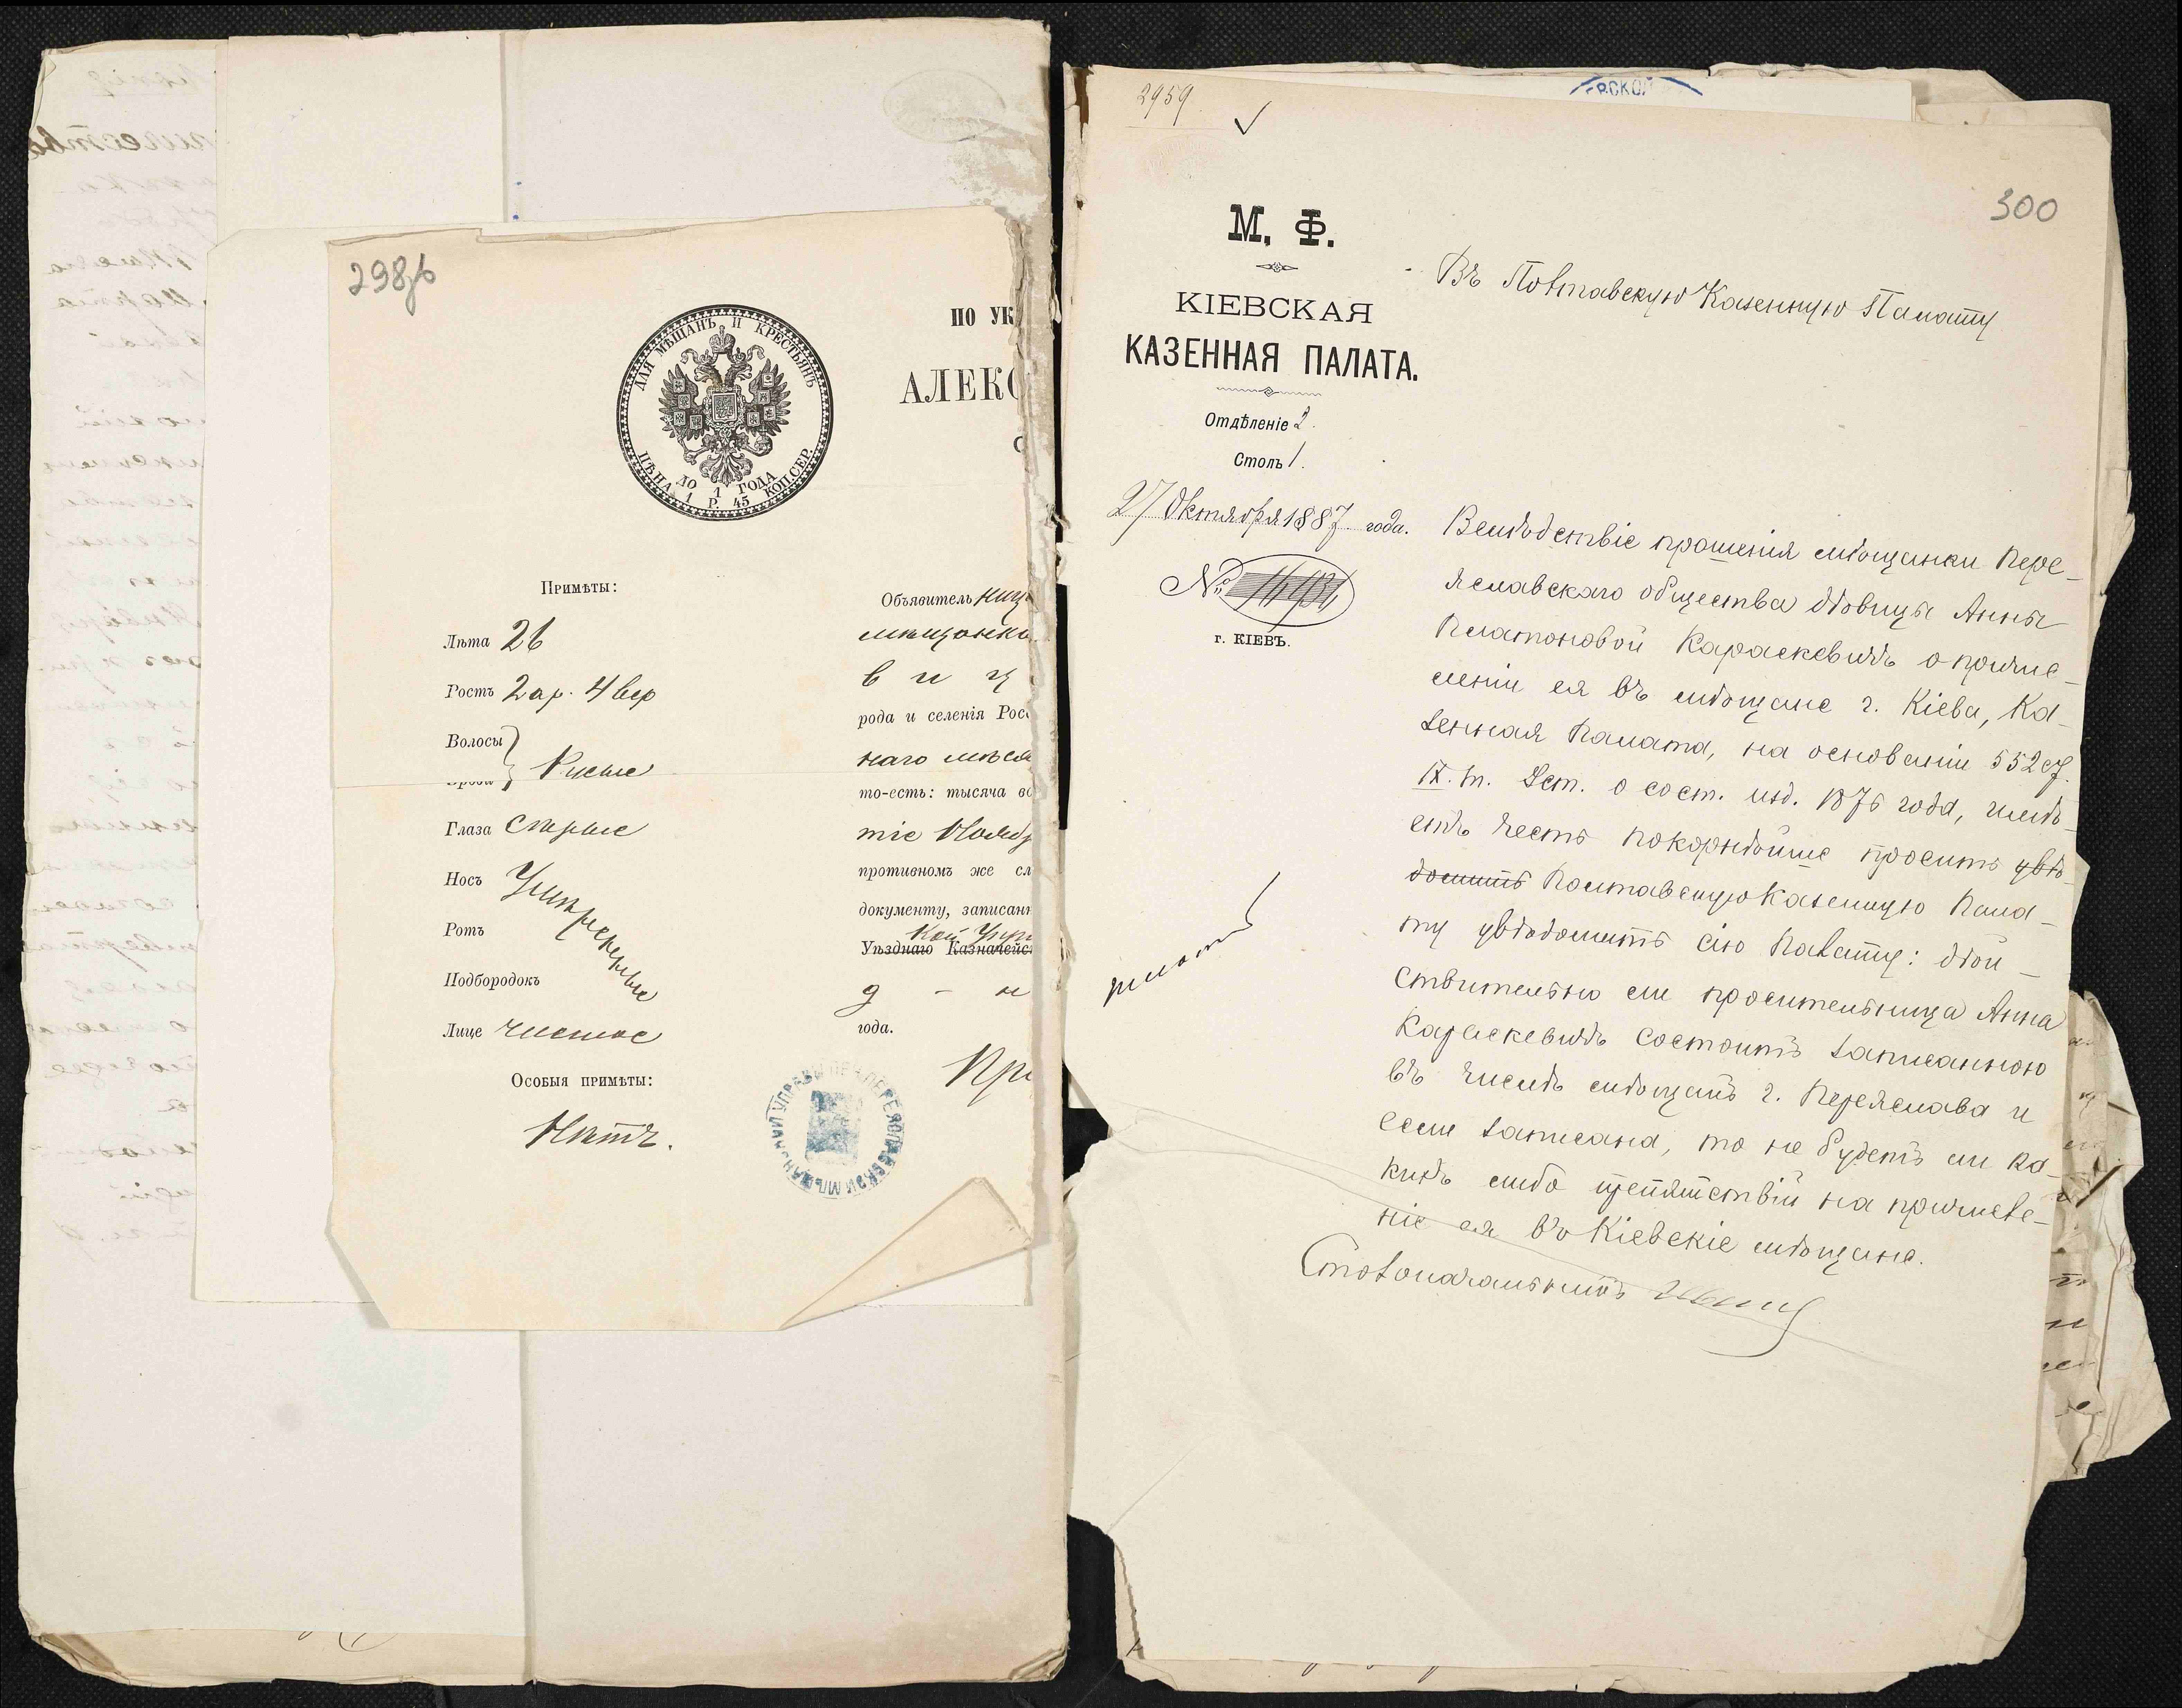 298 рб
ДЛЯ МѢЩАНЪ И КРЕСТЬЯНЪ
ЦѢНА 1 Р. 45 КОП. СЕР.
ДО 1 ГОДА
ПО УК
АЛЕКС
С
Примѣты:
Лѣта 26
Ростъ 2 ар. 4 вер
Волосы
Брови } Русые
Глаза Сѣрые
Носъ
Ротъ Умѣренные
Подбородокъ
Лице чистое
Особыя примѣты:
Нѣтъ.
Объявитель
мѣщанка
в и ц
рода и селенія Росс
наго мѣся
то-есть: тысяча во
тіе Ноябр
противномъ же сл
документу, записанн
кой Упр
Уѣзднаго Казначейс
д - н
года.
Пр
ПЕРЕЯСЛАВСКОЙ МѢЩАНСКОЙ УПРАВЫ
РСКОЙ
2959
300
М. Ф.
КІЕВСКАЯ
КАЗЕННАЯ ПАЛАТА.
Отдѣленіе 2.
Столъ 1.
27 Октября 1887 года.
№
г. КІЕВЪ.
Въ Полтавскую Казенную Палату
Вслѣдствіе прошенія мѣщанки Пере-
яславскаго общества дѣвицы Анны
Платоновой Караскевичъ о причис-
леніи ея въ мѣщане г. Кіева, Ка-
зенная Палата, на основаніи 552 ст.
IX. т. Зак. о сост. изд. 1876 года, имѣ-
етъ честь покорнѣйше просить увѣ-
домить Полтавскую Казенную Пала-
ту увѣдомить сію Палату: дѣй-
ствительно ли просительница Анна
Караскевичъ состоитъ записанною
въ числѣ мѣщанъ г. Переяслава и
если записана, то не будетъ ли ка-
кихъ либо препятствій на причисле-
ніе ея въ Кіевскіе мѣщане.
Столоначальникъ